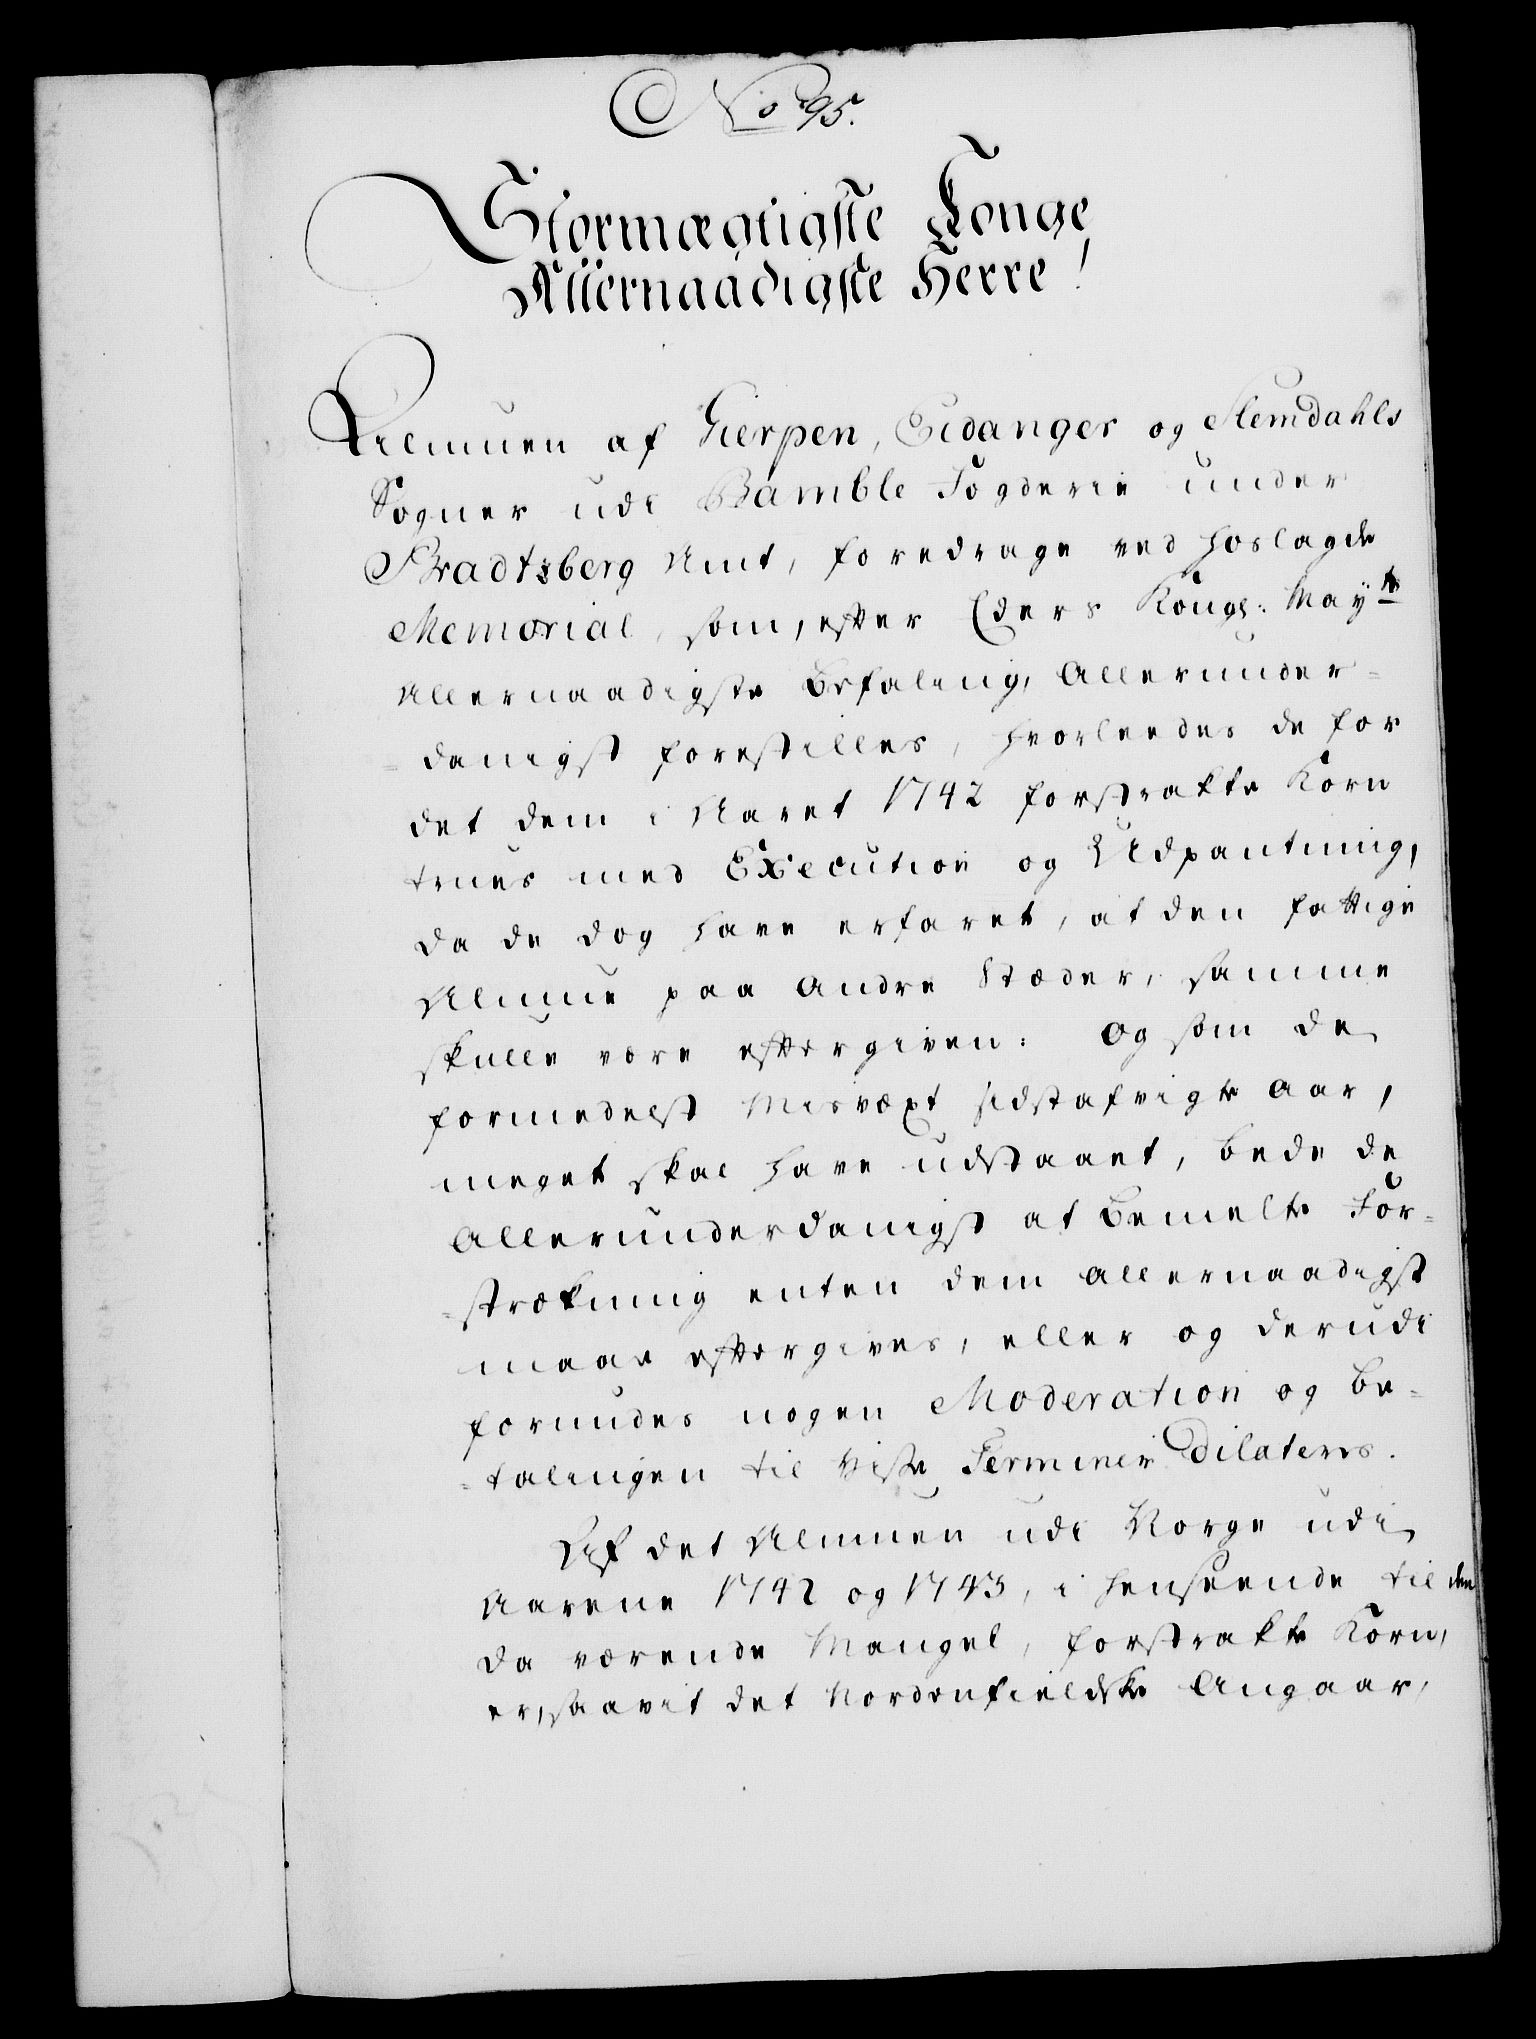 No 95.
Stormægtigste Konge
Allernaadigste Herre!
Almuen af Gierpen, Eidanger og Slemdahls
Sogner udi Bamble Fogderie under
Bradtsberg Amt, foredrage ved hoslagde
Memorial, som, efter Eders Kongl: Mayts
Allernaadigste Befaling, Allerunder-
-danigst forestilles, hvorleedes de for
det dem i Aaret 1742 forstrakte Korn
trues med Execution og Udpantning,
da de dog have erfaret, at den fattige
Almue paa andre Stæder, samme
skulle være eftergiven: Og som de
formedelst Misvæxt sidstafvigte Aar,
meget skal have udstaaet, bede de
Allerunderdanigst at Bemelte For-
-strækning enten dem allernaadigst
maae eftergives, eller og derudi
forundes nogen Moderation og Be-
-talingen til visse Terminer dilateres.
Af det Almuen udi Norge udi
Aarene 1742 og 1743, i henseende til den
da værende Mangel, forstrakte Korn,
er, saavit det Nordenfieldske Angaar,